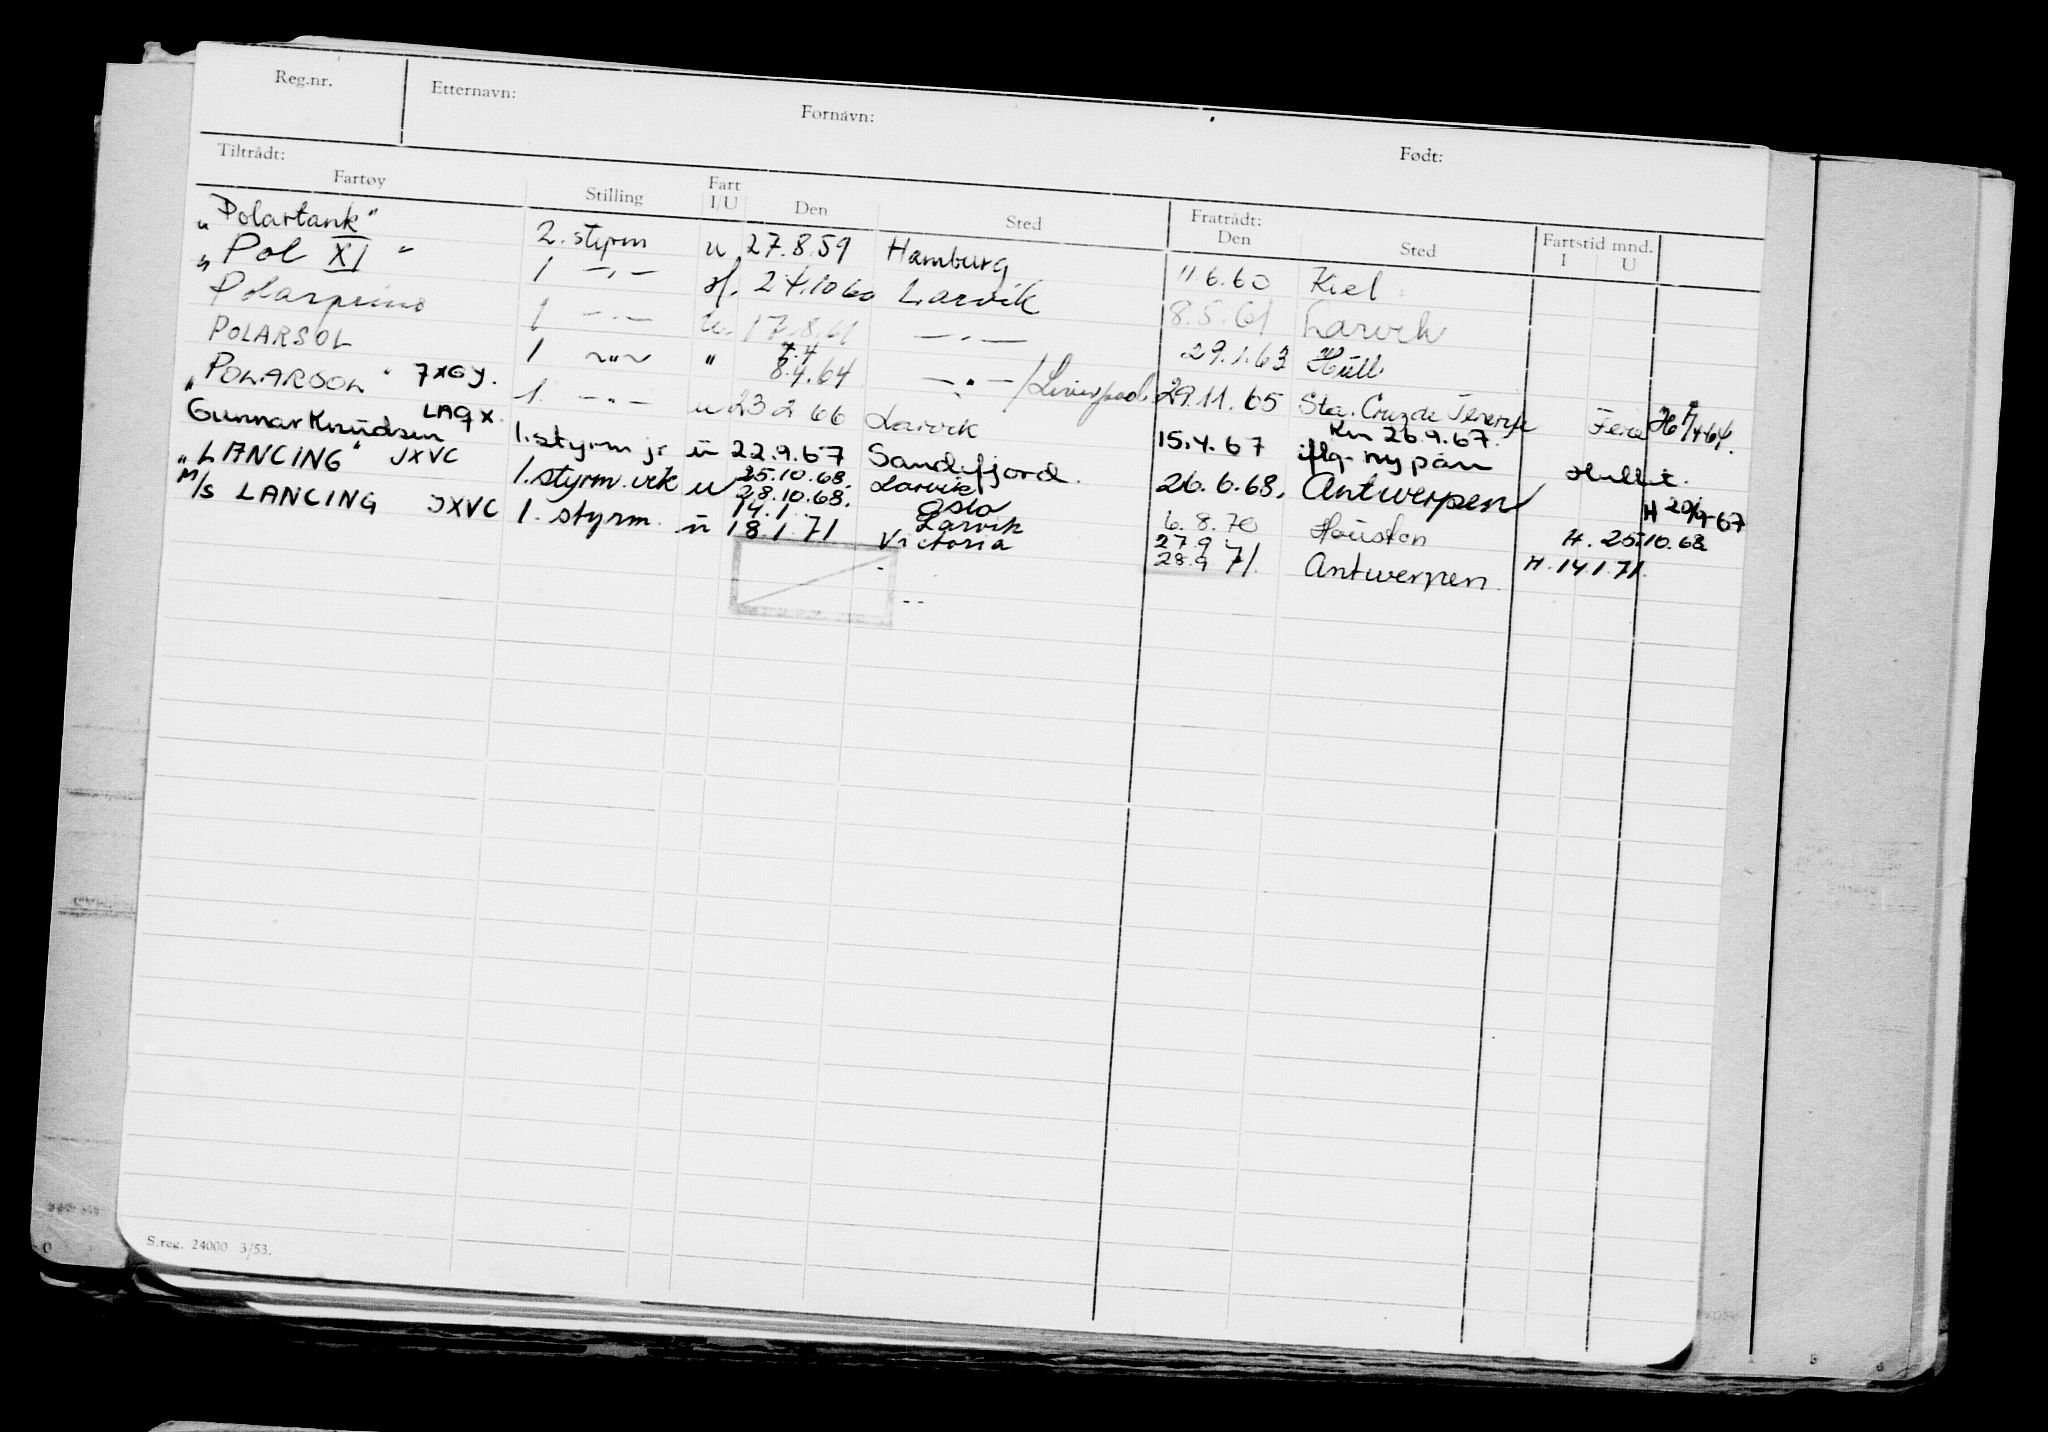 Reg.nr. Etternavn: Fornavn: Født:
Tiltrådt: Fratrådt:
Fartøy Stilling Fart I/U Den Sted Den Sted Fartstid mnd. I U
"Polartank" 2. styrm u 27.8.59 Hamburg 11.6.60 Kiel
"Pol XI" 1 —"— 24.10 60 Larvik 8.5.61 Larvik
Polarprins 1 —"— u. 17.8.61 —"— 29.1.63 Hull
POLARSOL 1 —"— " 7.4 8.4.64 —"—/Liverpool 29.11.65 Sta. Cruz de Tenerife H 7/4 64
"POLARSOL" 7XGY. 1. —"— u 23 2 66 Larvik 15.4.67 iflg. ny påm 26.9.67.
Gunnar Knudsen LAQX. 1. styrm jr u 22.9.67 Sandefjord. 26.6.68. Antwerpen H 20/9-67
"LANCING" JXVC 1. styrm. vik u 25.10.68. 28.10.68. Larvik Oslo 6.8.70 Houston H. 25.10.68
M/S LANCING JXVC 1. styrm. u 14.1 18.1.71 Larvik Victoria 27.9 28.9 71. Antwerpen H. 14.1.71.
S.reg. 24000 3/53.